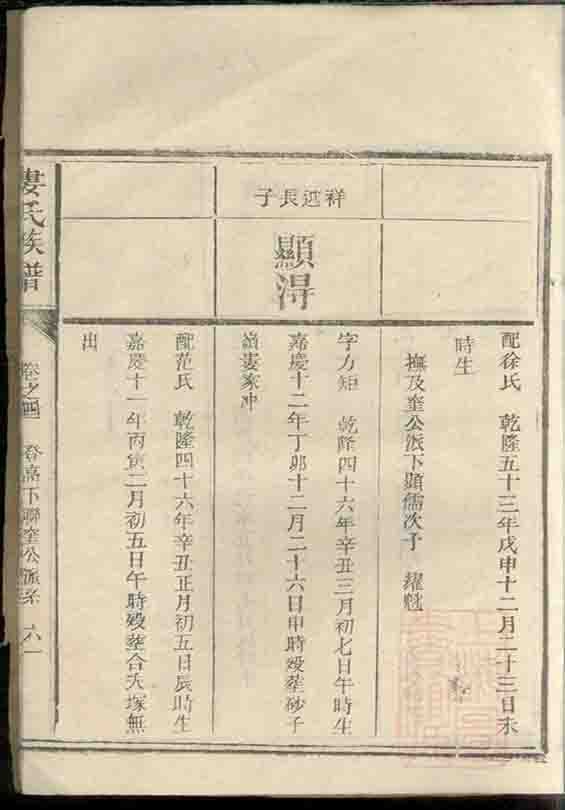 配徐氏　乾隆五十三年戊申十二月二十三日未
時生
撫及奎公派下顯儒次子　耀魁
祥近長子
顯淂
字方矩　乾隆四十六年辛丑三月初七日午時生
嘉慶十二年丁卯十二月二十六日申時殁塟砂子
嶺婁家冲
配范氏　乾隆四十六年辛丑正月初五日辰時生
嘉慶十一年丙寅二月初五日午時殁塟合夭塚無
出
婁氏族譜
卷之四　登高下聯奎公派系　六一